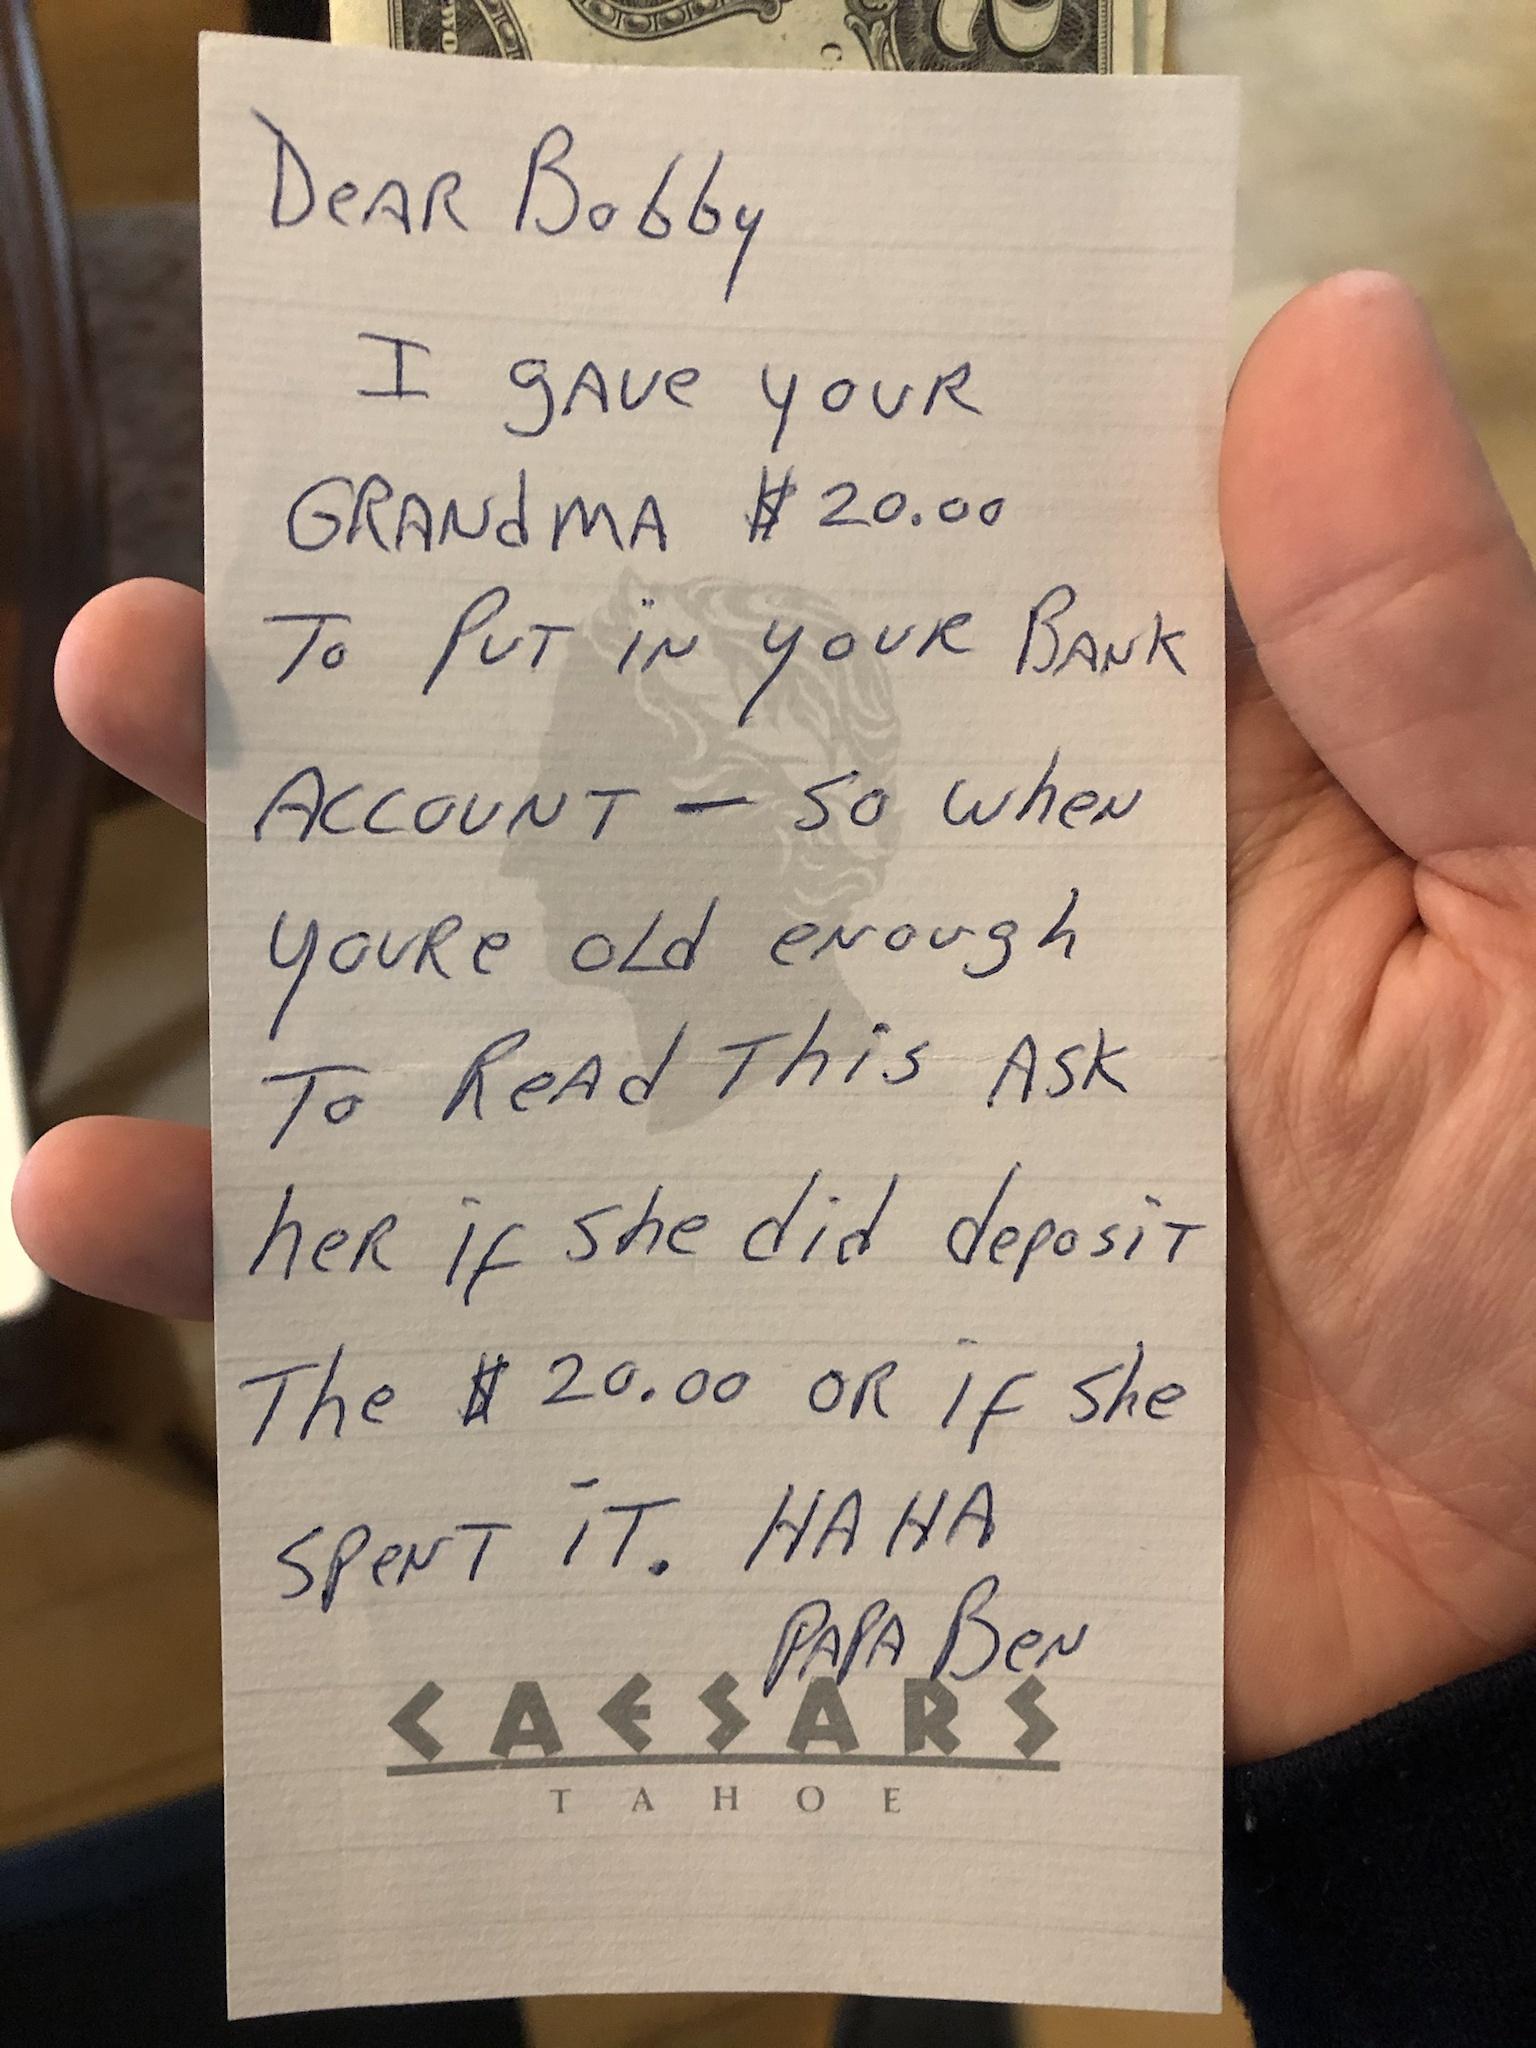 2
Dear Bobby
I gave your
Grandma $20.00
To put in your Bank
Account – so when
youre old enough
To Read This Ask
her if she did deposit
The $20.00 or if she
spent it. HA HA
Papa Ben
CAESARS
TAHOE